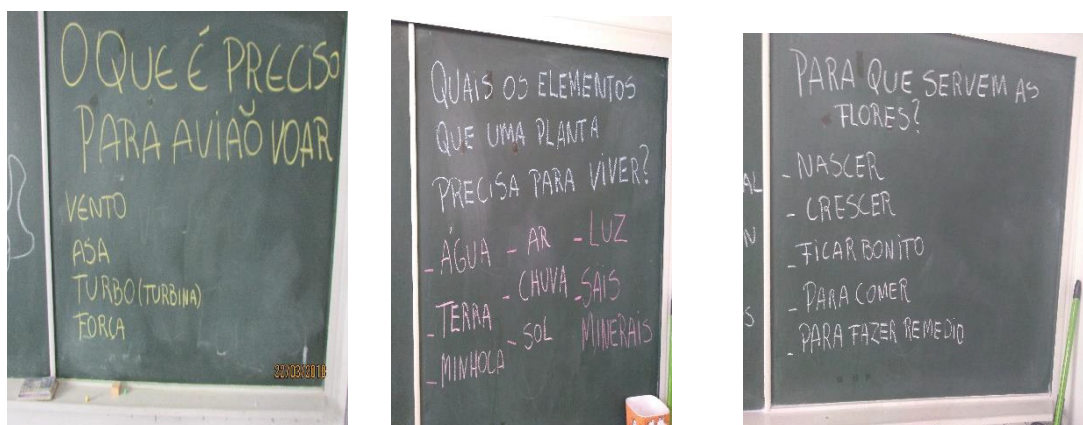 O QUE É PRECISO
PARA AVIÃO VOAR
VENTO
ASA
TURBO (TURBINA)
FORÇA
22/03/2018
QUAIS OS ELEMENTOS
QUE UMA PLANTA
PRECISA PARA VIVER?
- ÁGUA - AR - LUZ
- TERRA - CHUVA - SAIS
- MINHOCA - SOL MINERAIS
PARA QUE SERVEM AS
FLORES?
- NASCER
- CRESCER
- FICAR BONITO
- PARA COMER
- PARA FAZER REMEDIO